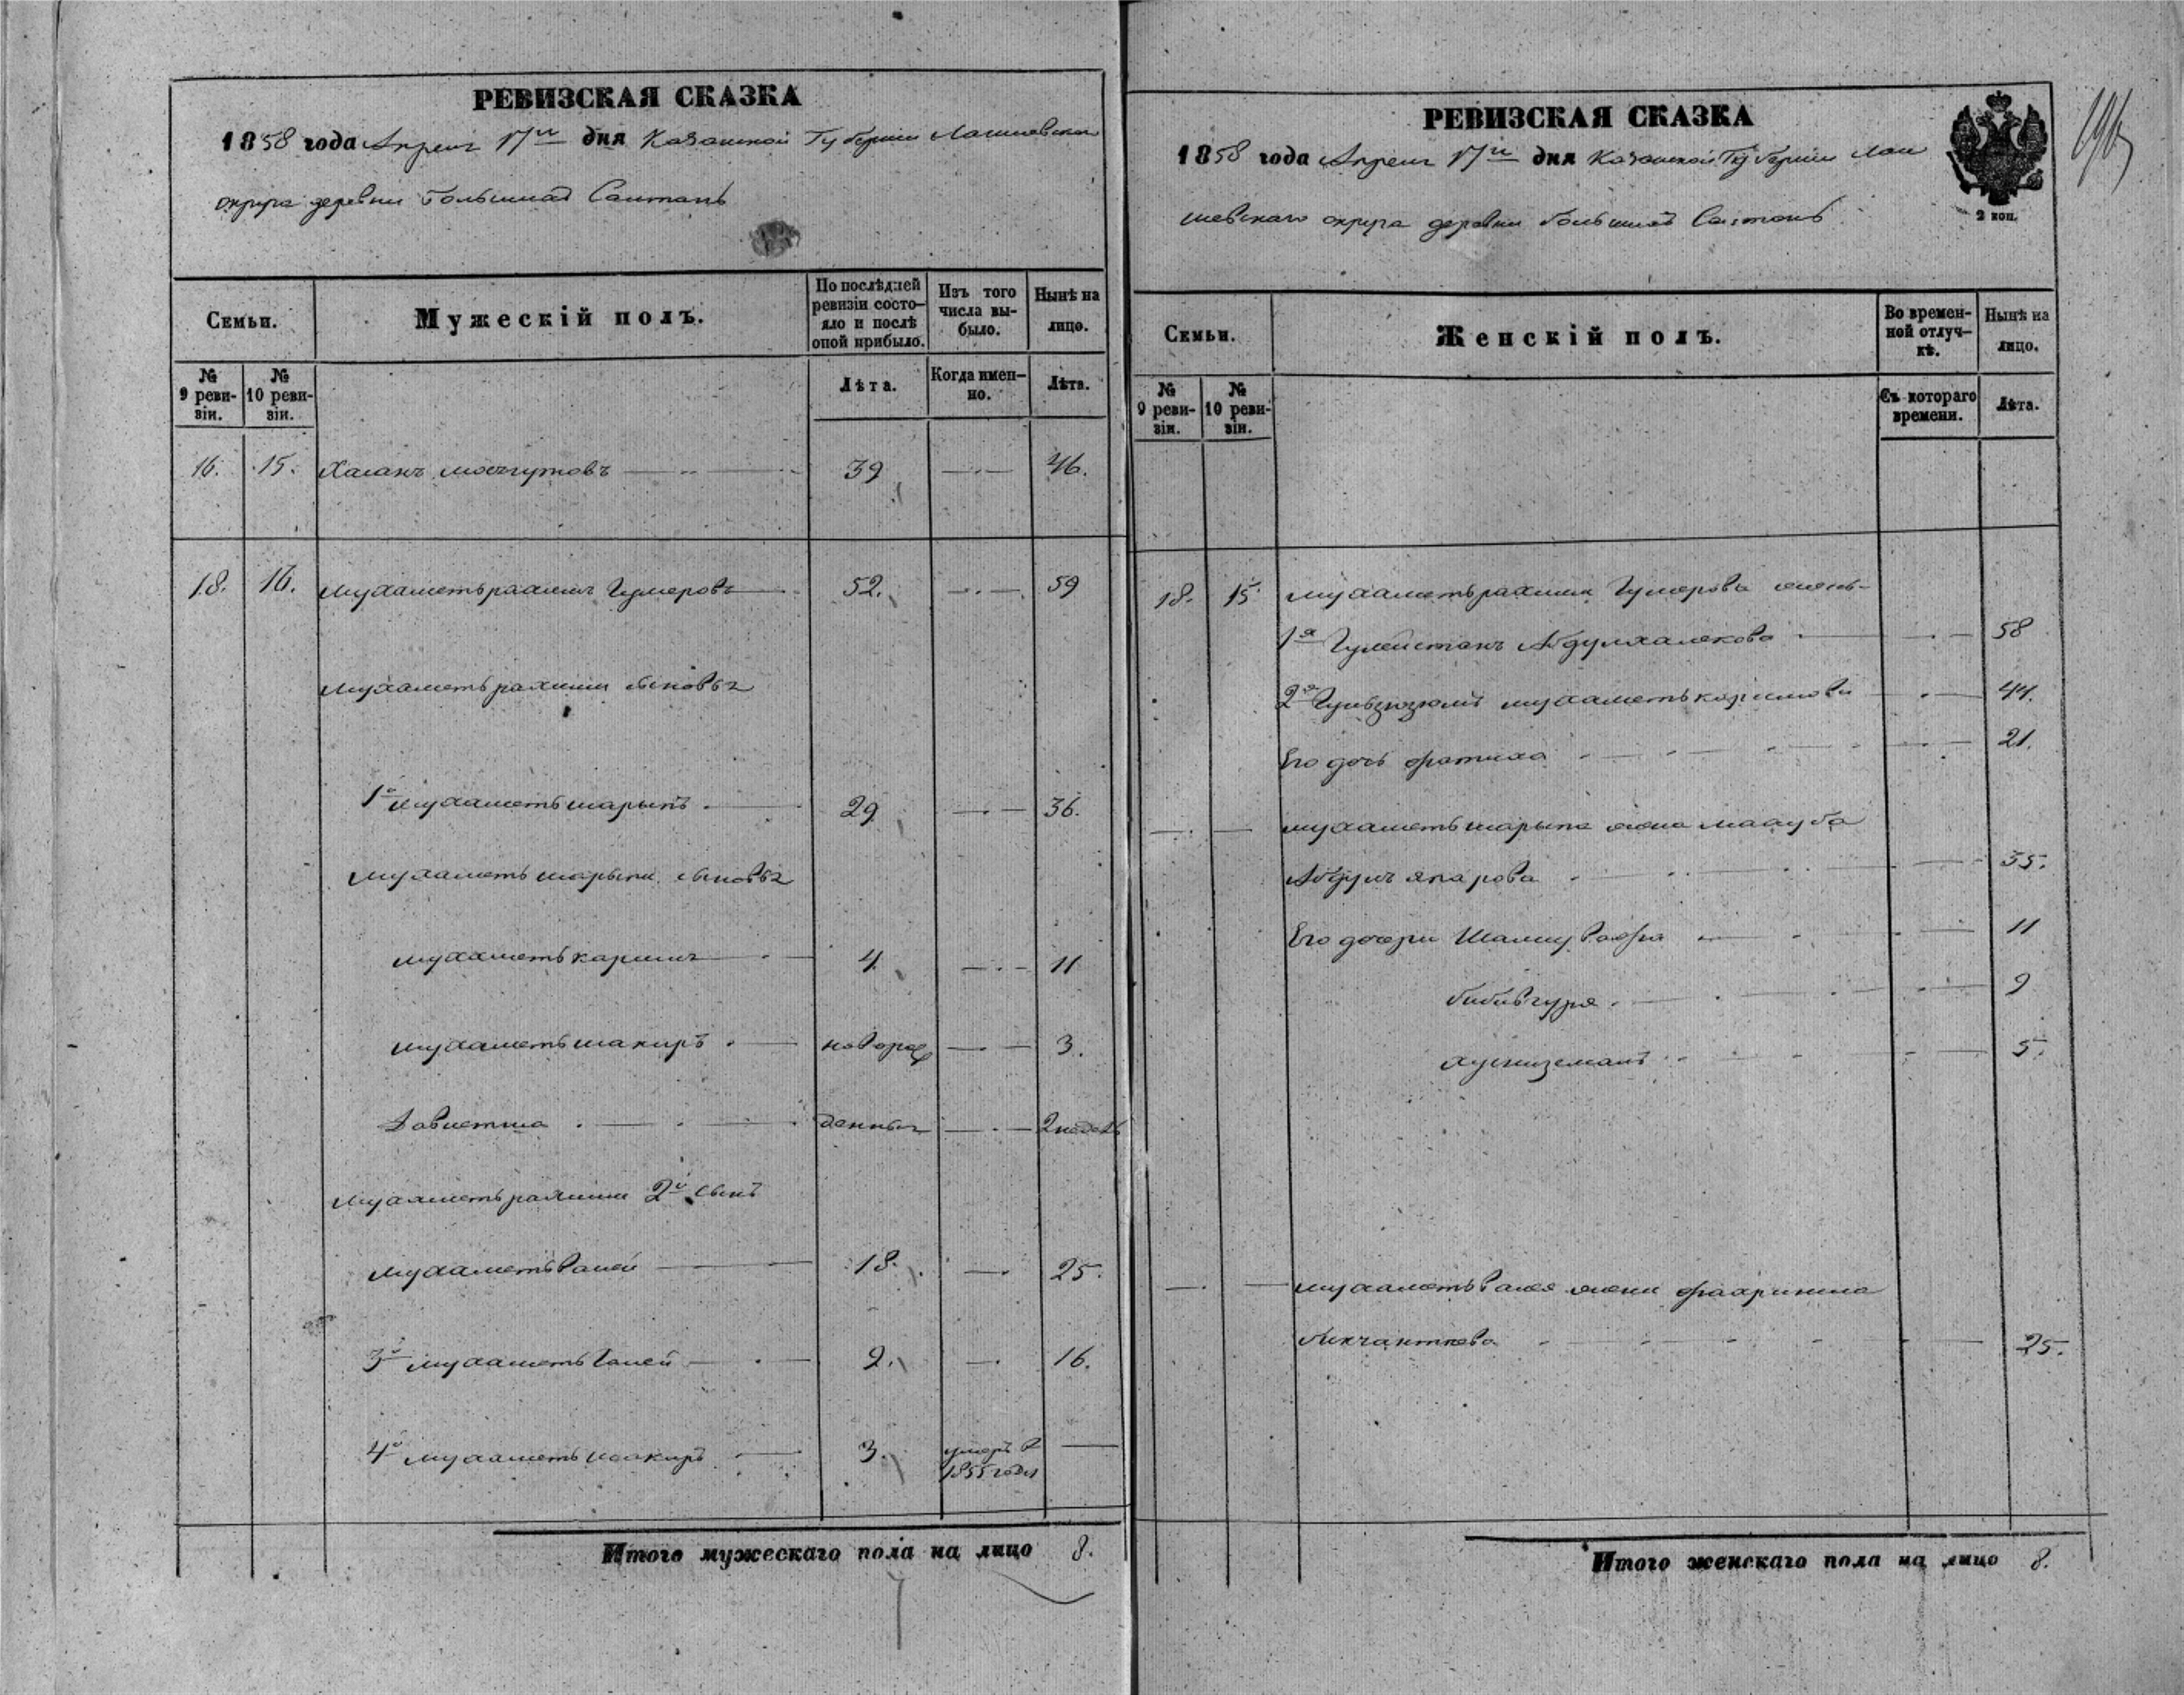 РЕВИЗСКАЯ СКАЗКА
1858 года Апреля 17го дня Казанской Губернии Лаишевскаго
округа деревни Большихъ
Семьи.
Мужескій полъ.
По послѣдней ревизіи состо-
яло и послѣ
оной прибыло.
Изъ того
числа вы-
было.
Нынѣ на
лицо.
№
9 реви-
зіи.
№
10 реви-
зіи.
Лѣта.
Когда имен-
но.
Лѣта.
16. 15. Хасанъ 39 46.
18. 16. Мухаметьрахимъ Гумеровъ 52. 59
Мухаметьрахима сыновья
1й Мухаметьшарыпъ 29 36.
Мухаметьшарыпа сыновья
Мухаметькаримъ 4 11
Мухаметьшакиръ новорож 3.
Давлетша денный 2 недель
Мухаметьрахима 2й сынъ
Мухаметьвалей 18. 25.
3й Мухаметьгалей 9. 16.
4й 3. умеръ в
1855 году
Итого мужескаго пола на лицо 8.
РЕВИЗСКАЯ СКАЗКА
1858 года Апреля 17го дня Казанской Губернии Лаи
шевскаго округа деревни Большихъ
2 коп.
Семьи.
Женскій полъ.
Во времен-
ной отлуч-
кѣ.
Нынѣ на
лицо.
№
9 реви-
зіи.
№
10 реви-
зіи.
Съ котораго
времени.
Лѣта.
18. 15. Мухаметьрахима Гумерова жены
1я Гулейстанъ Абдулхалекова 58
2я Мухаметькаримова 44.
Его дочь Фатиха 21.
Мухаметьшарыпа жена Маауба
Абдулъ япарова 35.
Его дочери 11
9
Хусниземанъ 5.
Мухаметьвалея жена
25.
Итого женскаго пола на лицо 8.